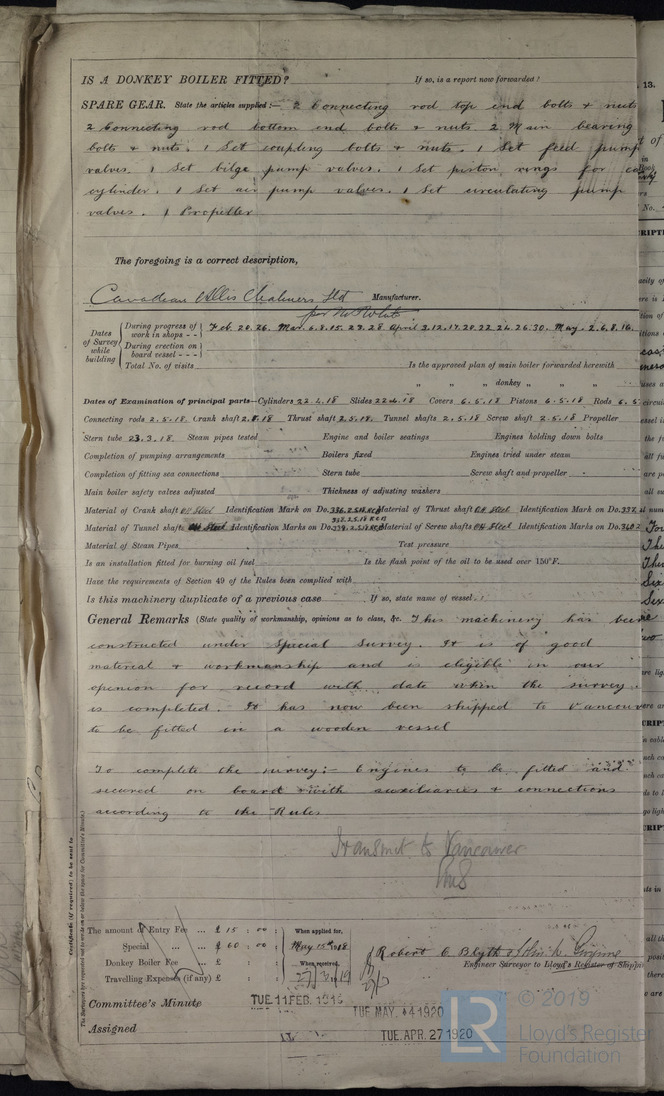 IS A DONKEY BOILER FITTED? If so, is a report now forwarded?
SPARE GEAR. State the articles supplied:— 2 Connecting rod top end bolts & nuts
2 Connecting rod bottom end bolts & nuts 2 Main bearing
bolts & nuts. 1 Set coupling bolts & nuts. 1 Set feed pump
valves. 1 Set bilge pump valves. 1 Set piston rings for
cylinder. 1 Set air pump valves. 1 Set circulating pump
valves. 1 Propeller
The foregoing is a correct description,
Canadian Allis Chalmers Ltd Manufacturer.
per
Dates of Survey while building
During progress of work in shops - - Feb. 20.26. Mar. 6.8.15.23.28 April 3.12.17.20.22.24.26.30. May. 2.6.8.16.
During erection on board vessel - - -
Total No. of visits Is the approved plan of main boiler forwarded herewith
" " " donkey " " "
Dates of Examination of principal parts—Cylinders 22.4.18 Slides 22.4.18 Covers 6.5.18 Pistons 6.5.18 Rods 6.5.
Connecting rods 2.5.18. Crank shaft 2.5.18 Thrust shaft 2.5.18. Tunnel shafts 2.5.18 Screw shaft 2.5.18 Propeller
Stern tube 23.3.18. Steam pipes tested Engine and boiler seatings Engines holding down bolts
Completion of pumping arrangements Boilers fixed Engines tried under steam
Completion of fitting sea connections Stern tube Screw shaft and propeller
Main boiler safety valves adjusted Thickness of adjusting washers
Material of Crank shaft OH Steel Identification Mark on Do. Material of Thrust shaft OH Steel Identification Mark on Do. 337.
Material of Tunnel shafts OH Steel Identification Marks on Do. Material of Screw shafts OH Steel Identification Marks on Do.
Material of Steam Pipes Test pressure
Is an installation fitted for burning oil fuel Is the flash point of the oil to be used over 150°F.
Have the requirements of Section 49 of the Rules been complied with
Is this machinery duplicate of a previous case If so, state name of vessel
General Remarks (State quality of workmanship, opinions as to class, &c. This machinery has been
constructed under Special Survey. It is of good
material & workmanship and is eligible in our
openion for record with date when the survey
is completed. It has now been shipped to Vancouver
to be fitted in a wooden vessel
To complete the survey:— Engines to be fitted and
secured on board with auxiliaries & connections
according to the Rules
Transmit to Vancouver
The amount of Entry Fee ... £ 15 : 00 : When applied for,
Special ... ... £ 60 : 00 : May 15th 1918
Donkey Boiler Fee ... £ : : When received,
Travelling Expenses (if any) £ : :
Robert C Blyth
Engineer Surveyor to Lloyd's Register of Shippi
Committee's Minute TUE. 11 FEB. 1919
TUE MAY. 4 1920
Assigned TUE. APR. 27 1920
LR © 2019
Lloyd's Register
Foundation